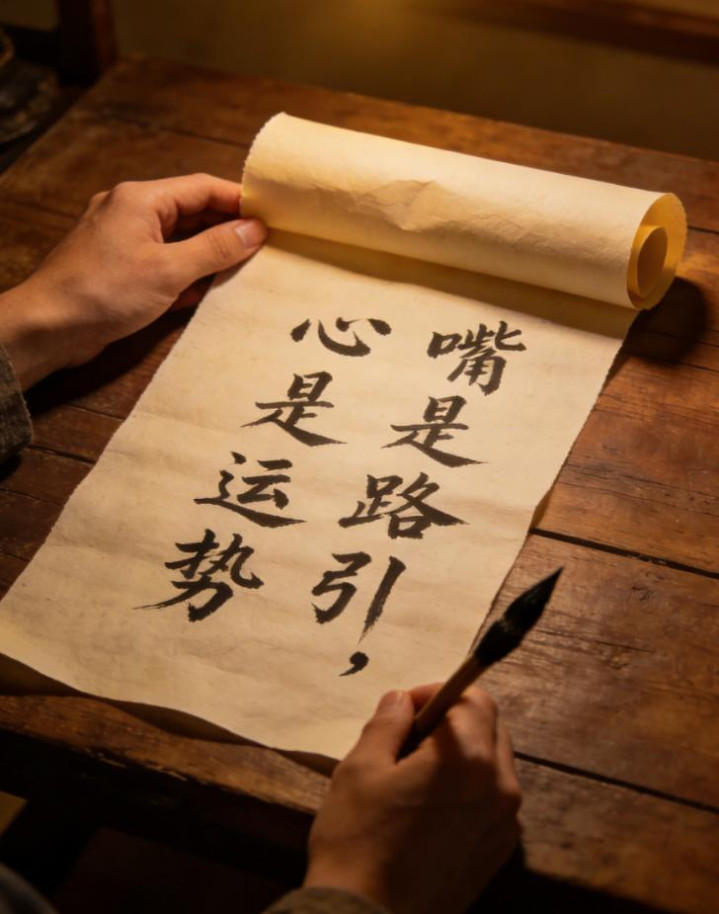 嘴是路引，
心是运势